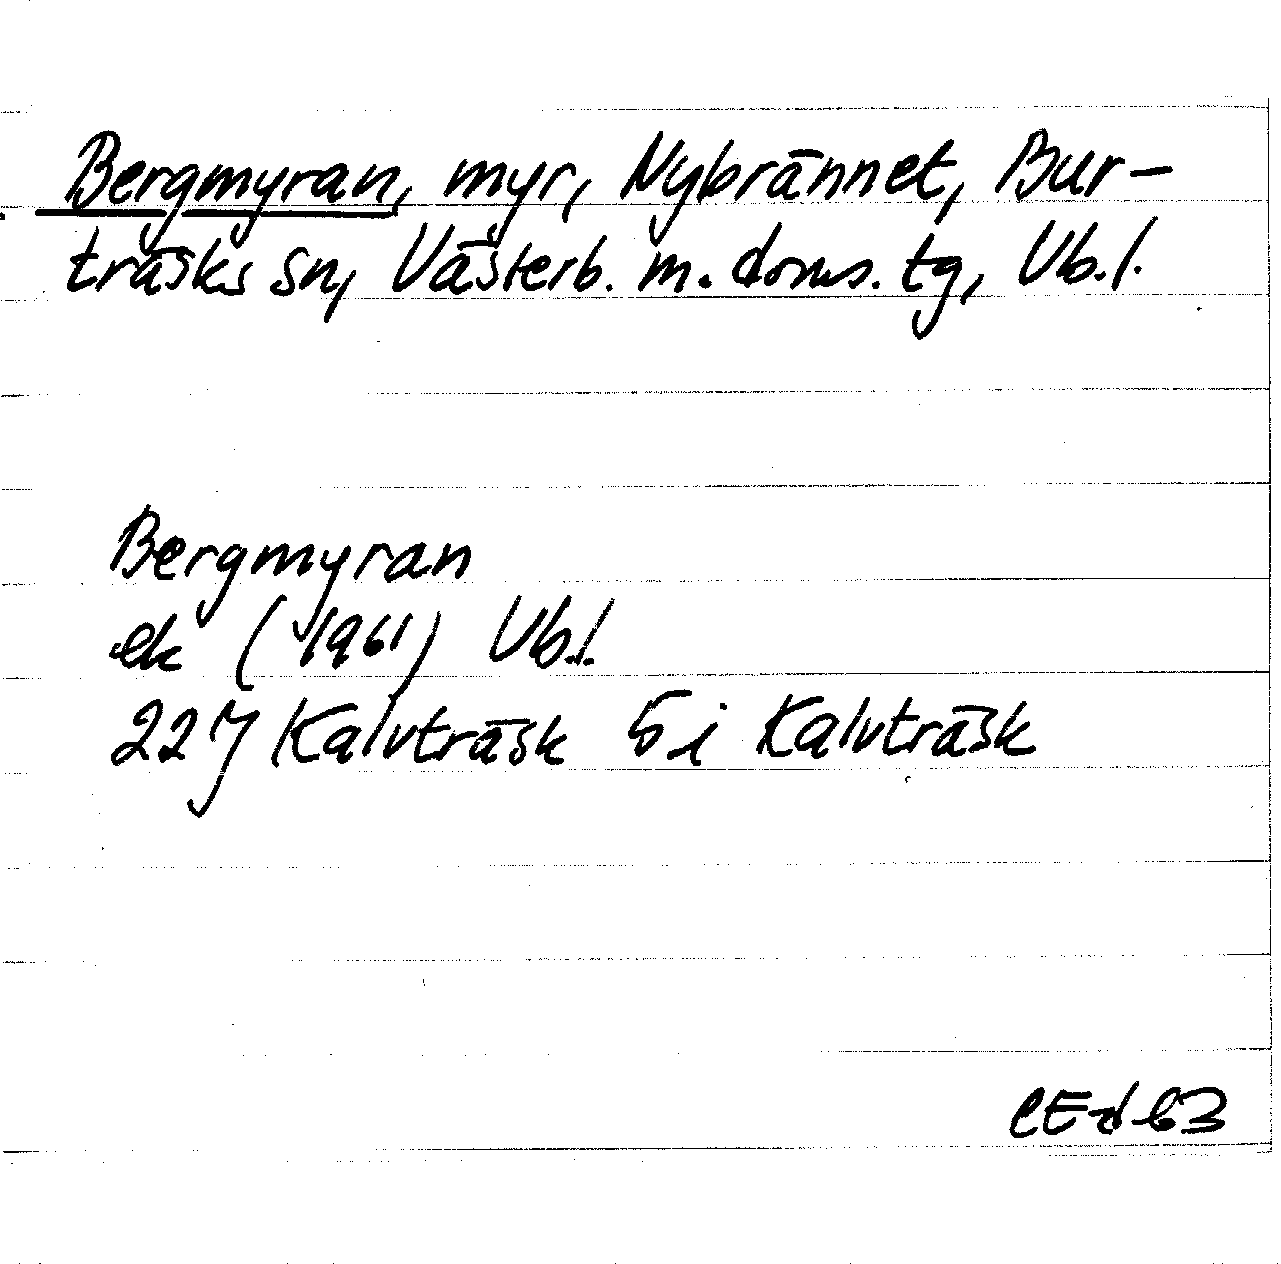 Bergmyran, myr, Nybrännet, Bur-
träsks sn, Västerb. m. doms. tg, Vb. l.
Bergmyran
ek (1961) Vb.l.
22J Kalvträsk 5 i Kalvträsk
CEd 63